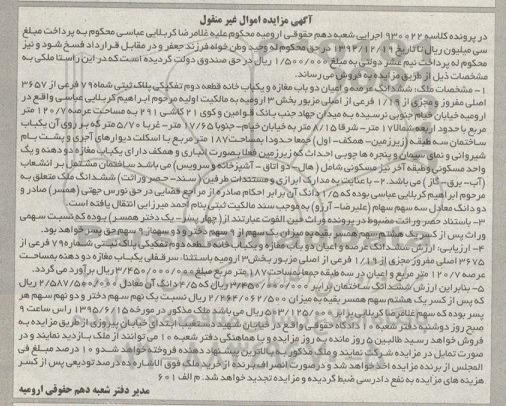 آگهی مزایده اموال غیر منقول
در پرونده کلاسه ۹۳۰۰۲۲ اجرایی شعبه دهم حقوقی ارومیه محکوم علیه غلامرضا کربلایی عباسی محکوم به پرداخت مبلغ
سی میلیون ریال تا تاریخ ۱۳۹۲/۱۲/۱۹ در حق محکوم له وحید وطن خواه فرزند جعفر و در مقابل قرارداد فسخ شود و نیز
محکوم له پرداخت نیم عشر دولتی به مبلغ ۱/۵۰۰/۰۰۰ ریال در حق صندوق دولت گردیده است که در این راستا ملکی به
مشخصات ذیل از طریق مزایده به فروش می رساند.
۱- مشخصات ملک: ششدانگ عرصه و اعیان دو باب مغازه و یکباب خانه قطعه دوم تفکیکی پلاک ثبتی شماره ۷۹ فرعی از ۳۶۵۷
اصلی مفروز و مجزی از ۱/۱۹ فرعی از اصلی مزبور بخش ۳ ارومیه به مالکیت اولیه مرحوم ابراهیم کربلایی عباسی واقع در
ارومیه خیابان خیام جنوبی نرسیده به میدان جهاد جنب بانک قوامین و کوی ۲۱ کاشی ۲۹۱ به مساحت عرصه ۱۲۰/۷ متر
مربع با حدود اربعه شمالا ۱۷ متر- شرقا ۸/۱۵ متر به خیابان خیام- جنوبا ۱۷/۶۵ متر- غربا ۵/۷۰ متر که بر روی آن یکباب
ساختمان سه طبقه (زیرزمین- همکف- اول) جمعا حدودا بمساحت ۱۸۷ متر مربع با اسکلت دیوارهای آجری و پشت بام
شیروانی و نمای سیمان و پنجره ها چوبی احداث که زیرزمین فعلا بصورت انباری و همکف دارای یکباب مغازه دو دهنه و یک
واحد مسکونی و طبقه آخر نیز مسکونی شامل (هال- دو اتاق- آشپزخانه و سرویس) می باشد ساختمان مشتمل بر انشعاب
(آب- برق- گاز) می باشد. ۲- با عنایت به مدارک ابرازی و مستندات طرفین (سند- حصر وراثت) ششدانگ ملک متعلق به
مرحوم ابراهیم کربلایی عباسی بوده که ۱/۵ دانگ آن برابر احکام صادره از مراجع قضایی در حق نورس جهتی (همسر) صادر و
دو دانگ معادل سه سهم سهام (علیرضا- آرزو) به موجب سند مالکیت ثبتی بنام احمد میرزایی انتقال یافته است.
۳- باستناد حصر وراثت مضبوط در پرونده وراث حین الفوت عبارتند از (چهار پسر- یک دختر همسر) بوده که نسبت سهمی
وراث پس از کسر یک هشتم سهم همسر بقیه به میزان یک سهم از ۹ سهم دختر و دو سهم از ۹ سهم حق پسر خواهد بود.
۴- ارزیابی: ارزش ششدانگ عرصه و اعیان دو باب مغازه و یکباب خانه قطعه دوم تفکیکی پلاک ثبتی شماره ۷۹ فرعی از
۳۶۷۵ اصلی مفروز مجزی از ۱/۱۹ فرعی از اصلی مزبور بخش ۳ ارومیه باستثناء سرقفلی یکباب مغازه دو دهنه بمساحت
عرصه ۱۲۰/۷ متر مربع و اعیان در سه طبقه جمعا بمساحت ۱۸۷ متر مربع مبلغ ۳/۴۵۰/۰۰۰/۰۰۰ ریال برآورد می گردد.
۵- بنابر این ارزش ششدانگ ساختمان برابر ۳/۴۵۰/۰۰۰/۰۰۰ ریال که ۴/۵ دانگ آن معادل ۲/۵۸۷/۵۰۰/۰۰۰ ریال
که پس از کسر یک هشتم سهم همسر بقیه به میزان ۲/۲۶۴/۰۶۲/۵۰۰ ریال نسبت یک نهم سهم دختر و دو نهم سهم هر
پسر بوده که سهم غلامرضا کربلایی برابر ۵۰۳/۱۲۵/۰۰۰ ریال می باشد ملک مذکور در مورخه ۱۳۹۵/۶/۱۵ راس ساعت ۹
صبح روز دوشنبه دفتر شعبه ۱۰ دادگاه حقوقی واقع در خیابان شهید دستغیب ابتدای خیابان پیروزی از طریق مزایده به
فروش خواهد رسید طالبین ۵ روز مانده به روز مزایده و با هماهنگی دفتر شعبه ۱۰ می توانند از ملک بازدید نمایند و در
صورت تمایل در مزایده شرکت نمایند و ملک مذکور به بالاترین پیشنهاد دهنده فروخته خواهد شد و ۱۰ درصد مبلغ فی
المجلس از برنده مزایده اخذ خواهد شد و در صورت انصراف برنده از خرید ملک فوق الاشاره ده درصد تودیعی پس از کسر
هزینه های مزایده به نفع دادرسی ضبط گردیده و مزایده تجدید خواهد شد. م الف ۶۰۱
مدیر دفتر شعبه دهم حقوقی ارومیه